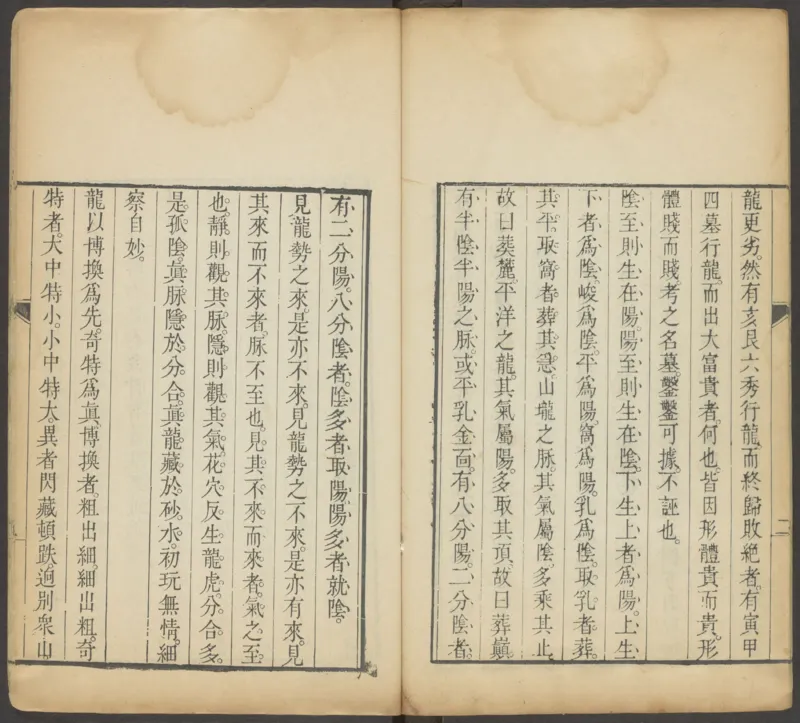 龍更劣。然有亥艮六秀行龍。而終歸敗絕者。有寅甲
四墓行龍。而出大富貴者。何也。皆因形體貴而貴。形
體賤而賤。考之名墓。鑿鑿可據。不誣也。
陰至則生在陽。陽至則生在陰。下生上者爲陽。上生
下者爲陰。峻爲陰。平爲陽。窩爲陽。乳爲陰。取乳者葬
其平。取窩者葬其。山壠之脉。其氣屬陰。多乘其止。
故曰葬麓。平洋之龍。其氣屬陽。多取其頂。故曰葬巔。
有半陰半陽之脉。或平乳金靣。有八分陽。二分陰者。
有二分陽。八分陰者。陰多者取陽。陽多者就陰。
見龍勢之來。是亦不來。見龍勢之不來。是亦有來。見
其來而不來者。脉不至也。見其不來而來者。氣之至
也。靜則觀其脉。隱則觀其氣。花穴反生龍虎。分合多
是孤陰。眞脉隱於分合。眞龍藏於砂水。初玩無情。細
察自妙。
龍以博換爲先。奇特爲眞。博換者。粗出細。細出粗。奇
特者。大中特小。小中特大。異者閃藏頓跌逈別衆山
二